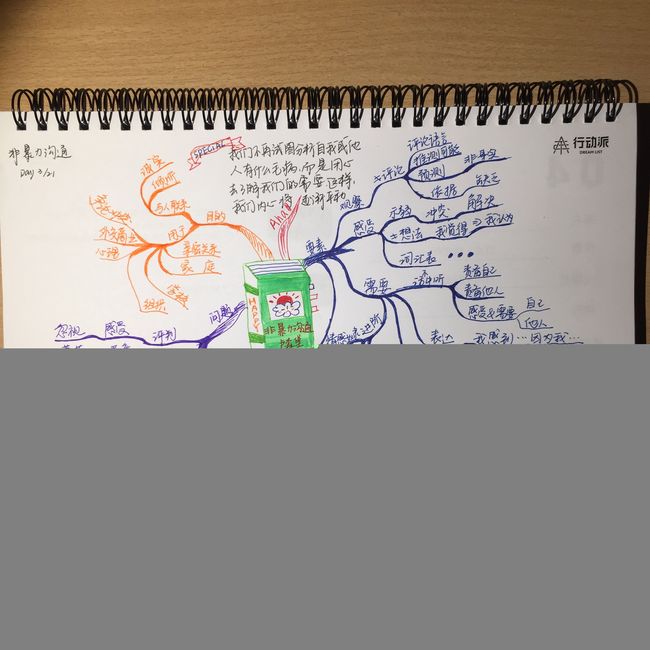 非暴力沟通
Day 3/21
SPECIAL
我们不再试图分析自我或他
人有什么毛病,而是用心
去了解我们的需要 这样,
我们内心将逐渐平静
Aha!
行动派
DREAM LIST
诚实
倾听
与人联系
目的
用于
亲密关系
家庭
学校
组织
心理
外交商业
要素
观察
≠评论
评论语言
推测问题
预测
非事实
依据
缺乏
感受
示弱
冲突
解决
≠想法
我觉得
⇒我认为
词汇表
需要
请听
责备自己
责备他人
感受&需要
自己
他人
表达
我感到…因为我…
问题
评判
感受
忽视
HAPPY
非暴力沟通